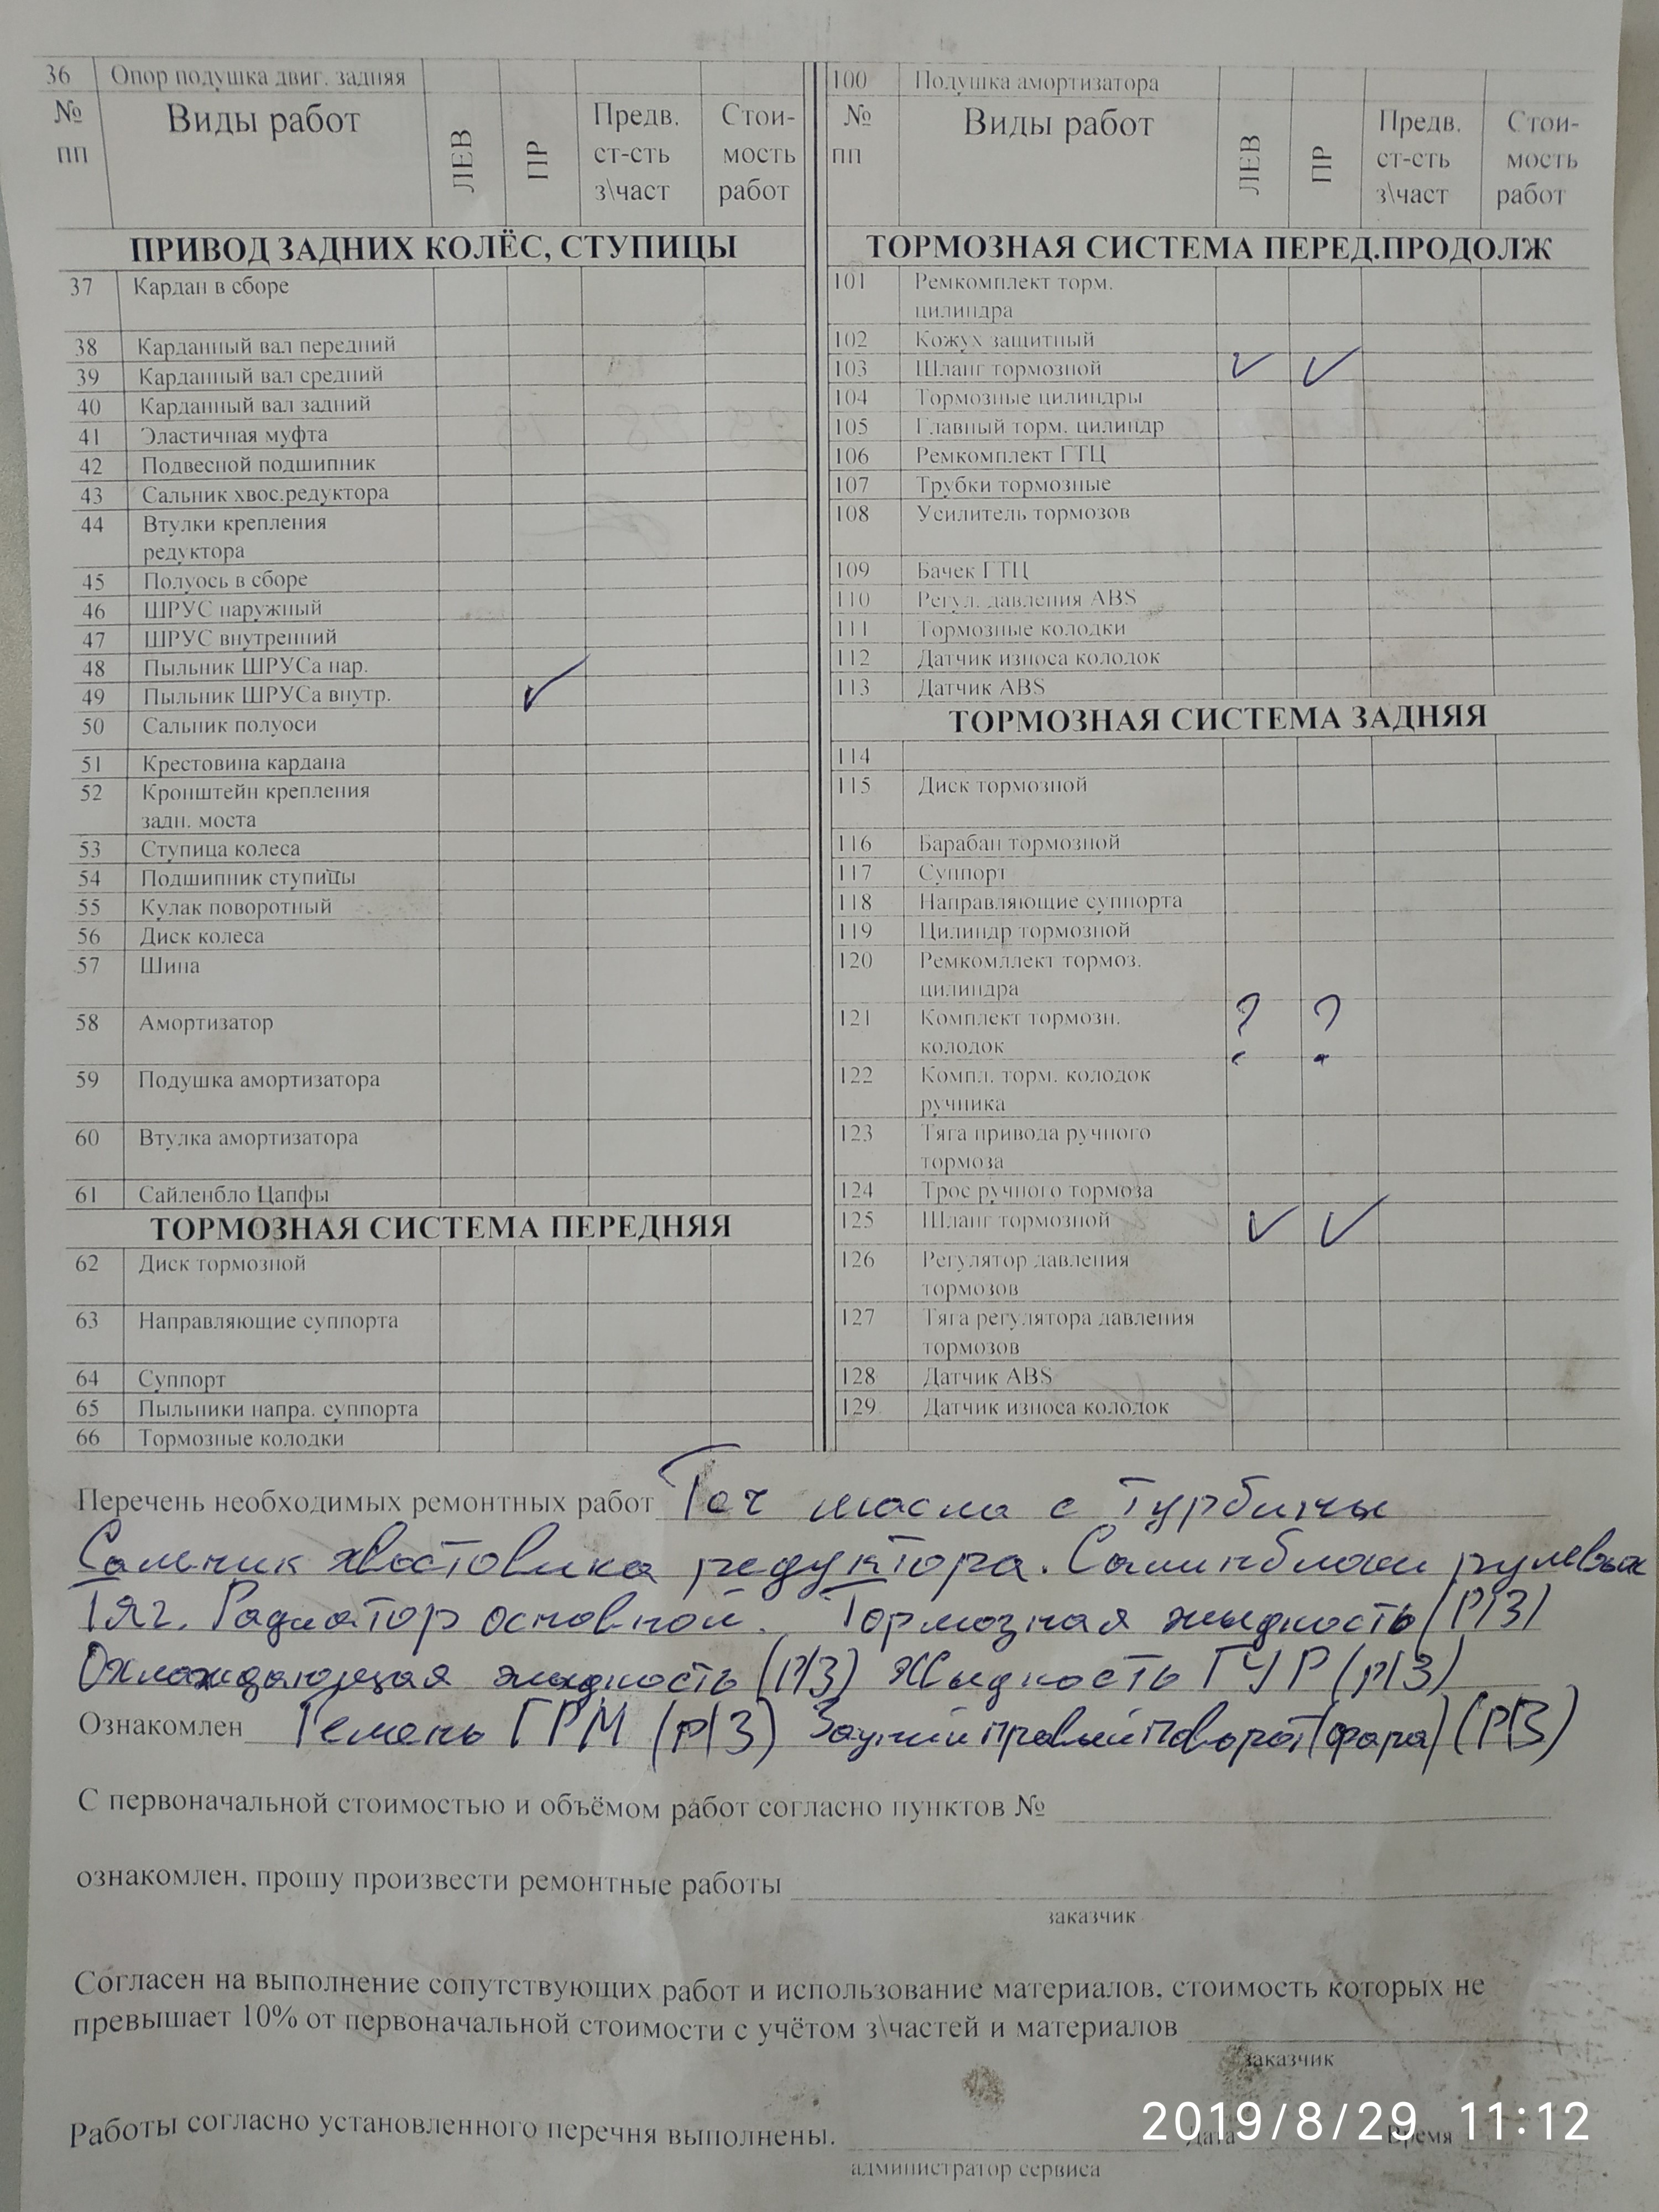 36 Опор подушка двиг. задняя
№ пп Виды работ ЛЕВ ПР Предв. ст-сть з\част Стои-мость работ
ПРИВОД ЗАДНИХ КОЛЁС, СТУПИЦЫ
37 Кардан в сборе
38 Карданный вал передний
39 Карданный вал средний
40 Карданный вал задний
41 Эластичная муфта
42 Подвесной подшипник
43 Сальник хвос.редуктора
44 Втулки крепления
редуктора
45 Полуось в сборе
46 ШРУС наружный
47 ШРУС внутренний
48 Пыльник ШРУСа нар.
49 Пыльник ШРУСа внутр. ✓
50 Сальник полуоси
51 Крестовина кардана
52 Кронштейн крепления
задн. моста
53 Ступица колеса
54 Подшипник ступицы
55 Кулак поворотный
56 Диск колеса
57 Шина
58 Амортизатор
59 Подушка амортизатора
60 Втулка амортизатора
61 Сайленбло Цапфы
ТОРМОЗНАЯ СИСТЕМА ПЕРЕДНЯЯ
62 Диск тормозной
63 Направляющие суппорта
64 Суппорт
65 Пыльники напра. суппорта
66 Тормозные колодки
100 Подушка амортизатора
№ пп Виды работ ЛЕВ ПР Предв. ст-сть з\част Стои-мость работ
ТОРМОЗНАЯ СИСТЕМА ПЕРЕД.ПРОДОЛЖ
101 Ремкомплект торм.
цилиндра
102 Кожух защитный
103 Шланг тормозной ✓ ✓
104 Тормозные цилиндры
105 Главный торм. цилиндр
106 Ремкомплект ГТЦ
107 Трубки тормозные
108 Усилитель тормозов
109 Бачек ГТЦ
110 Регул. давления ABS
111 Тормозные колодки
112 Датчик износа колодок
113 Датчик ABS
ТОРМОЗНАЯ СИСТЕМА ЗАДНЯЯ
114
115 Диск тормозной
116 Барабан тормозной
117 Суппорт
118 Направляющие суппорта
119 Цилиндр тормозной
120 Ремкомллект тормоз.
цилиндра
121 Комплект тормозн. ? ?
колодок
122 Компл. торм. колодок
ручника
123 Тяга привода ручного
тормоза
124 Трос ручного тормоза
125 Шланг тормозной ✓ ✓
126 Регулятор давления
тормозов
127 Тяга регулятора давления
тормозов
128 Датчик ABS
129 Датчик износа колодок
Перечень необходимых ремонтных работ Теч масла с турбины
Сальник хвостовика редуктора. рулевых
Тяг. Радиатор основной. Тормозная жидкость (Р/З)
Охлаждающая жидкость (Р/З) Жидкость ГУР (Р/З)
Ознакомлен Ремень ГРМ (Р/З) Задний правый поворот (фара) (Р/З)
С первоначальной стоимостью и объёмом работ согласно пунктов №
ознакомлен, прошу произвести ремонтные работы
заказчик
Согласен на выполнение сопутствующих работ и использование материалов, стоимость которых не
превышает 10% от первоначальной стоимости с учётом з\частей и материалов
заказчик
Работы согласно установленного перечня выполнены. Дата Время
администратор сервиса
2019/8/29 11:12